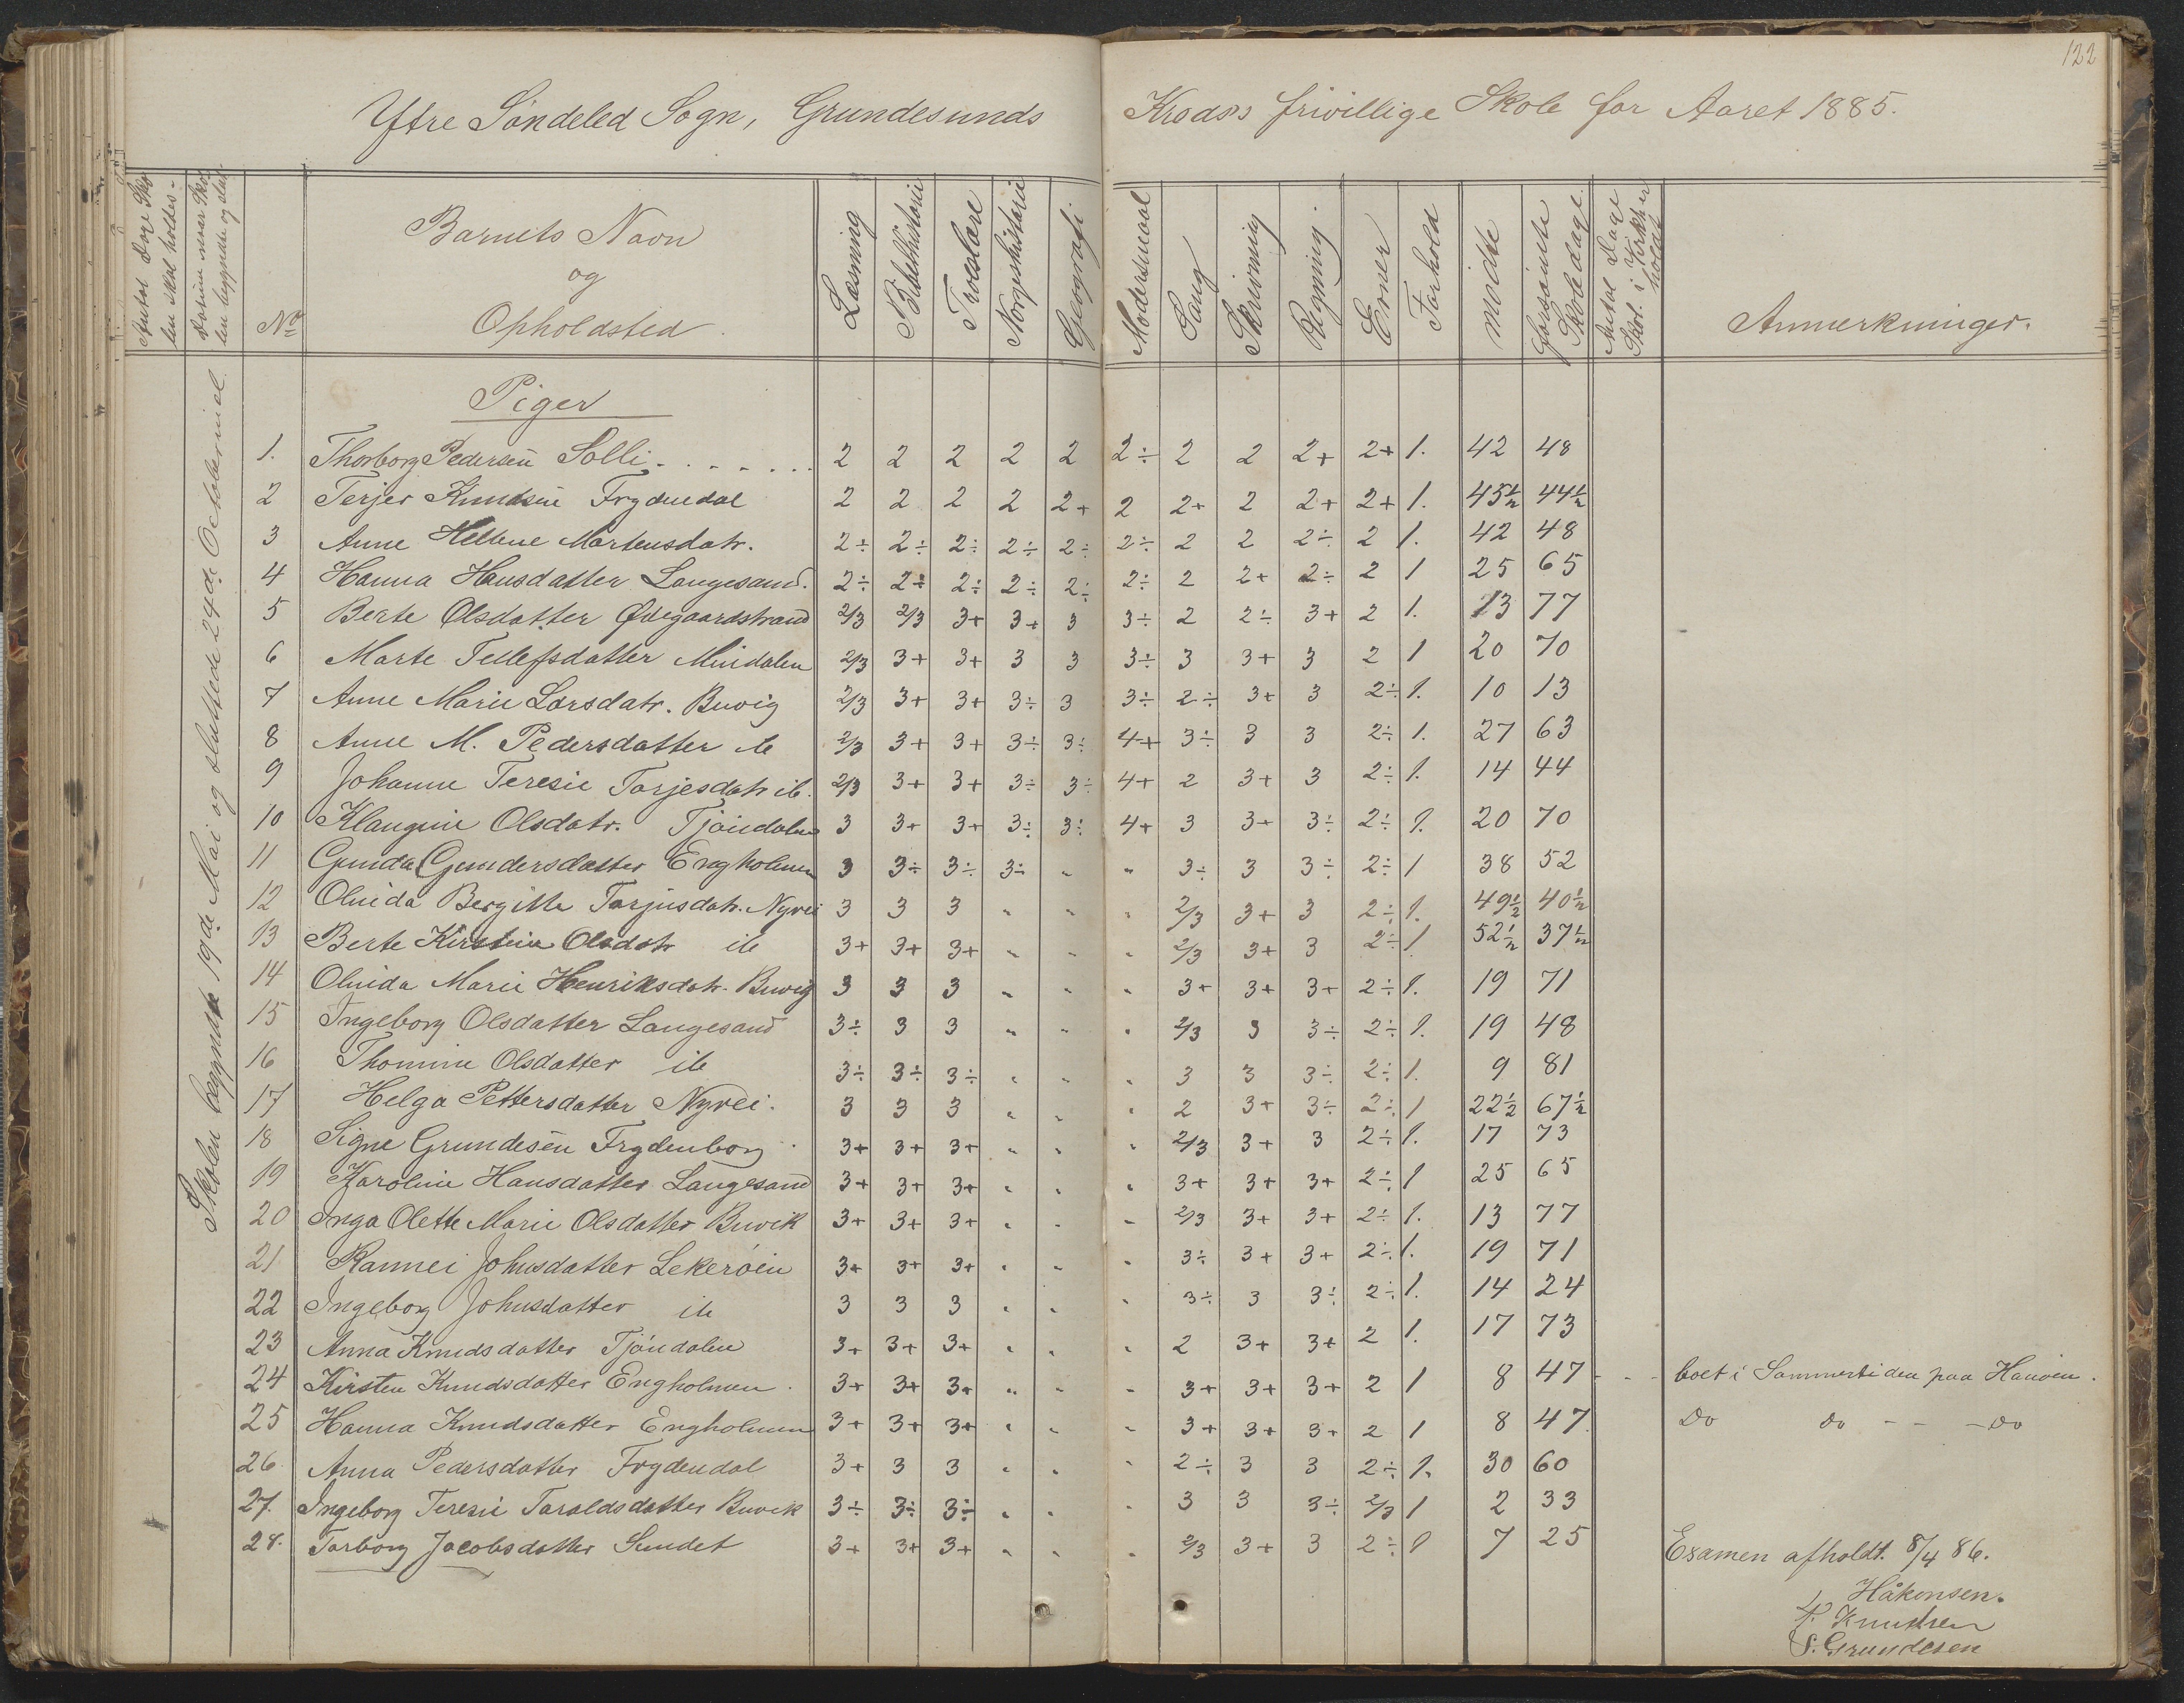 122
Yttre Söndeled Sogn, Grundesunds Kreds's frivillige Skole for Aaret 1885.
Antal Dage Skolen skal holdes
Datum naar Skolen begyndte og sluttede
No
Barnets Navn
og
Opholdsted
Læsning
Bibelhistorie
Troeslære
Norgeshistorie
Geografi
Modersmaal
Sang
Skrivning
Regning
Evner
Forhold
mödte
forsömte Skoledage
Antal Dage Skol. i Virkh. er holdt
Anmerkninger.
Skolen begyndte 19de Mai og sluttede 24de October md.
Piger
1. Thorborg Pedersen Solli 2 2 2 2 2 2÷ 2 2 2+ 2+ 1. 42 48
2 Terjer Knudsen Frydendal 2 2 2 2 2+ 2 2+ 2 2+ 2+ 1. 45½ 44½
3 Anne Hellene Martensdatr. 2÷ 2÷ 2÷ 2÷ 2÷ 2÷ 2 2 2÷ 2 1. 42 48
4 Hanna Hansdatter Langesand. 2÷ 2÷ 2÷ 2÷ 2÷ 2÷ 2 2+ 2÷ 2 1 25 65
5 Berte Olsdatter Ødegaardstrand 2/3 2/3 3+ 3+ 3 3÷ 2 2÷ 3+ 2 1. 13 77
6 Marte Tellefsdatter Mindalen 2/3 3+ 3+ 3 3 3÷ 3 3+ 3 2 1 20 70
7 Anne Marie Larsdatr. Buvig 2/3 3+ 3+ 3÷ 3 3÷ 2÷ 3+ 3 2÷ 1. 10 13
8 Anne M. Pedersdatter ib 2/3 3+ 3+ 3÷ 3÷ 4+ 3÷ 3 3 2÷ 1. 27 63
9 Johanne Teresie Tarjesdatr ib. 2/3 3+ 3+ 3÷ 3÷ 4+ 2 3+ 3 2÷ 1. 14 44
10 Klangine Olsdatr. Tjöndalen 3 3+ 3+ 3÷ 3÷ 4+ 3 3+ 3÷ 2÷ 1. 20 70
11 Gunda Gundersdatter Engholmen 3 3÷ 3÷ 3÷ " " 3÷ 3 3÷ 2÷ 1 38 52
12 Oluida Bergitte Tarjusdatr. Nyvei 3 3 3 " " " 2/3 3+ 3 2÷ 1. 49½ 40½
13 Berte Kirstine Olsdatr ib 3+ 3+ 3+ " " " 2/3 3+ 3 2÷ 1 52½ 37½
14 Oluida Marie Henriksdatr. Buvig 3 3 3 " " " 3+ 3+ 3+ 2÷ 1. 19 71
15 Ingeborg Olsdatter Langesand 3÷ 3 3 " " " 2/3 3 3÷ 2÷ 1. 19 48
16 Thomine Olsdatter ib 3÷ 3÷ 3÷ " " " 3 3 3÷ 2÷ 1. 9 81
17 Helga Pettersdatter Nyvei. 3 3 3 " " " 2 3+ 3÷ 2÷ 1 22½ 67½
18 Signe Grundesen Frydenborg 3+ 3+ 3+ " " " 2/3 3+ 3 2÷ 1. 17 73
19 Karoline Hansdatter Langesand 3+ 3+ 3+ " " " 3+ 3+ 3+ 2÷ 1 25 65
20 Inga Olette Marie Olsdatter Buvik 3+ 3+ 3+ " " " 2/3 3+ 3+ 2÷ 1. 13 77
21 Rannei Johnsdatter Lekeröen 3+ 3+ 3+ " " " 3÷ 3+ 3+ 2÷ 1. 19 71
22 Ingeborg Johnsdatter ib 3 3 3 " " " 3÷ 3 3÷ 2÷ 1. 14 24
23 Anna Knudsdatter Tjöndalen 3+ 3+ 3+ " " " 2 3+ 3+ 2 1. 17 73
24 Kirsten Knudsdatter Engholmen. 3+ 3+ 3+ " " " 3+ 3+ 3+ 2 1 8 47 - - boet i Sommertiden paa Havöen.
25 Hanna Knudsdatter Engholmen 3+ 3+ 3+ " " " 3+ 3+ 3+ 2 1 8 47. Do do - - - do
26. Anna Pedersdatter Frydendal 3+ 3 3 " " " 2÷ 3 3 2÷ 1. 30 60
27. Ingeborg Teresie Taraldsdatter Buvik 3÷ 3÷ 3÷ " " " 3 3 3÷ 2/3 1 2 33
28. Torborg Jacobsdatter Sundet 3+ 3+ 3+ " " " 2/3 3+ 3 2÷ 1 7 25
Examen afholdt. 8/4 86.
Håkonsen.
T. Knudsen
S. Grundesen